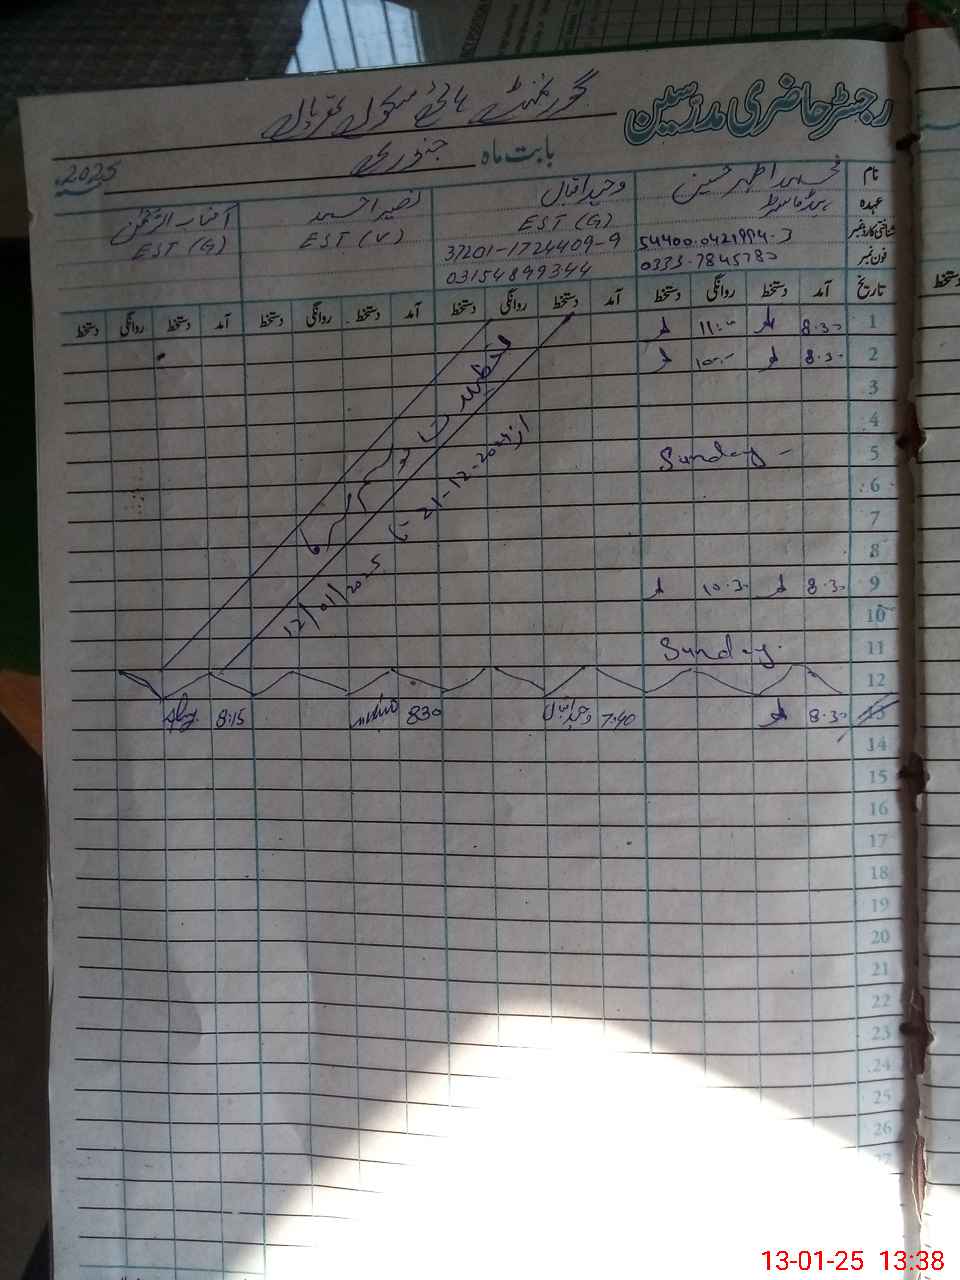 رجسٹر حاضری مدرسین گورنمنٹ ہائی سکول
بابت ماہ جنوری 2025
نام محمد اظہر حسین وحید اقبال نصیر احمد آفتاب الرحمن
عہدہ ہیڈ ماسٹر EST (G) EST (V) EST (G)
شناختی کارڈ نمبر 54400.0421994-3 37201-1724409-9
فون نمبر 0333-7845780 03154899344
تاریخ آمد دستخط روانگی دستخط آمد دستخط روانگی دستخط آمد دستخط روانگی دستخط آمد دستخط روانگی دستخط
1 8:30 11:00
2 8:30 10:00
3
4
5 Sunday
6
7
8
9 8:30 10:30
10
11 Sunday
12
13 8:30 7:40 وحید اقبال 830 8:15
14
15
16
17
18
19
20
21
22
23
24
25
26
27
تعطیلات موسم سرما
از 21-12-2024 تا 12/01/2025
13-01-25 13:38